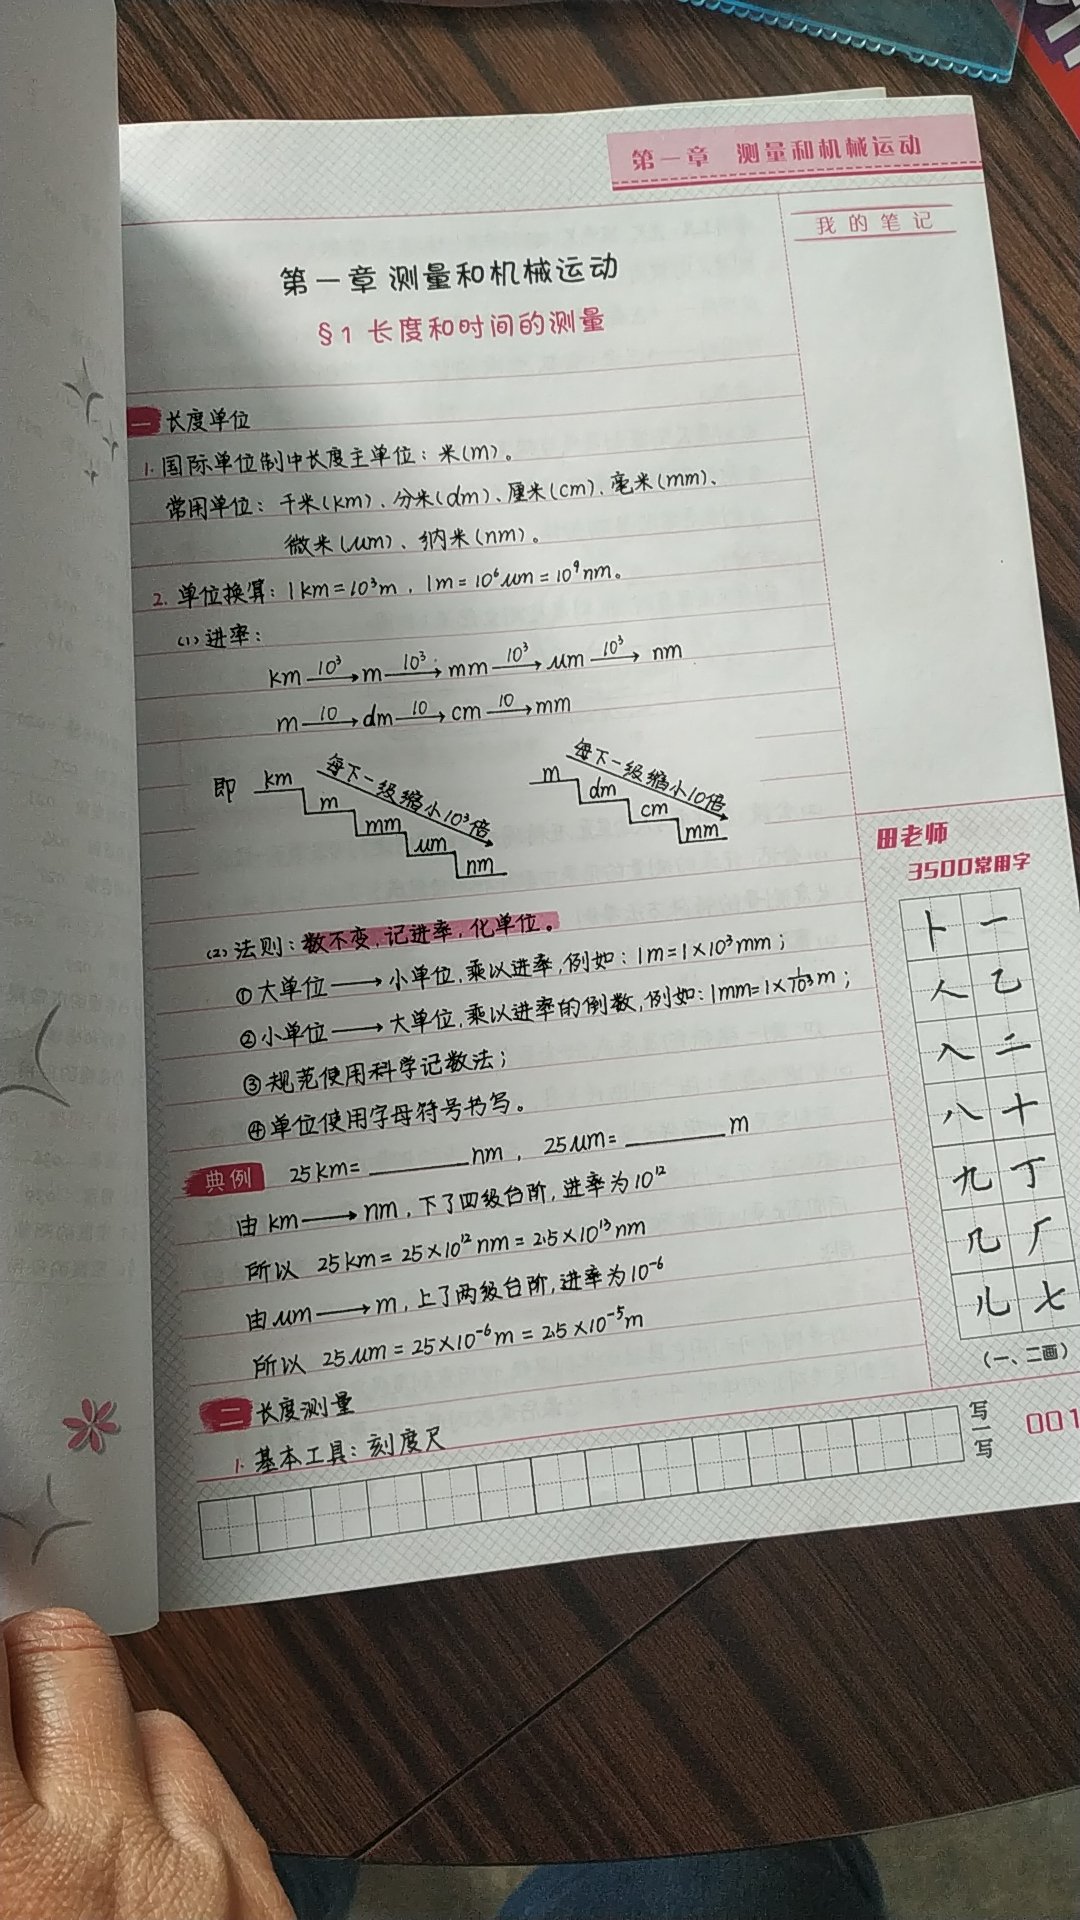 第一章 测量和机械运动
我的笔记
第一章 测量和机械运动
§1 长度和时间的测量
一 长度单位
1. 国际单位制中长度主单位：米(m)。
常用单位：千米(km)、分米(dm)、厘米(cm)、毫米(mm)、
微米(μm)、纳米(nm)。
2. 单位换算：1km=10³m，1m=10⁶μm=10⁹nm。
(1)进率：
km —10³→ m —10³→ mm —10³→ μm —10³→ nm
m —10→ dm —10→ cm —10→ mm
即 km m mm μm nm 每下一级缩小10³倍
m dm cm mm 每下一级缩小10倍
(2)法则：数不变，记进率，化单位。
①大单位→小单位，乘以进率，例如：1m=1×10³mm；
②小单位→大单位，乘以进率的倒数，例如：1mm=1×1/10³m；
③规范使用科学记数法；
④单位使用字母符号书写。
典例 25km=________nm，25μm=________m
由km→nm，下了四级台阶，进率为10¹²
所以 25km=25×10¹²nm=2.5×10¹³nm
由μm→m，上了两级台阶，进率为10⁻⁶
所以 25μm=25×10⁻⁶m=2.5×10⁻⁵m
二 长度测量
1. 基本工具：刻度尺
田老师
3500常用字
卜 一
人 乙
入 二
八 十
九 丁
几 厂
儿 七
(一、二画)
写一写
001